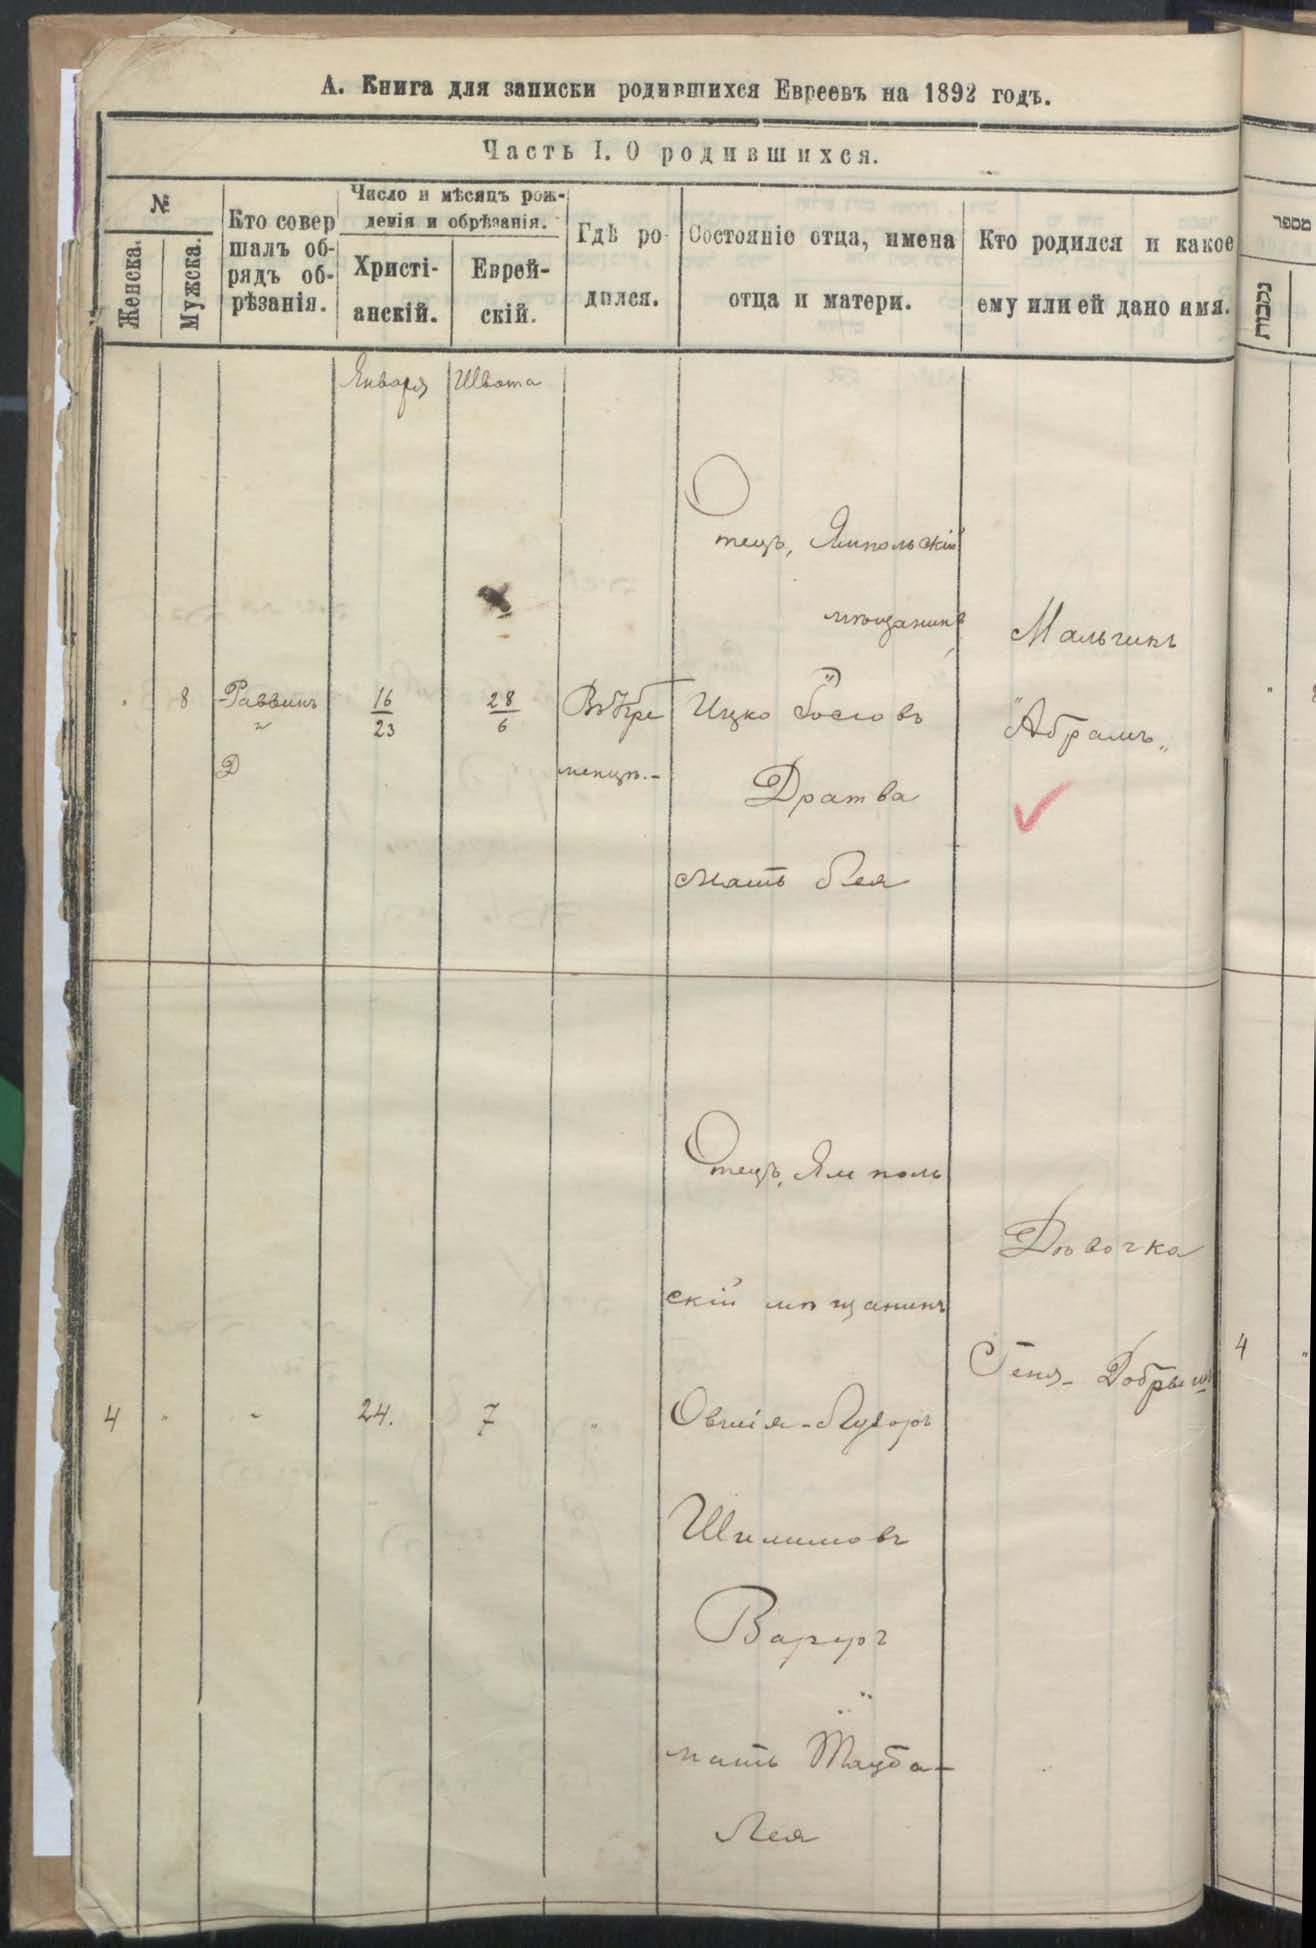 А. Книга для записки родившихся Евреевъ на 1892 годъ.
Часть I. О родившихся.
№
Женска.
Мужска.
Кто совер
шалъ об-
рядъ об-
рѣзанія.
Число и мѣсяцъ рож-
денія и обрѣзанія.
Христі-
анскій.
Еврей-
скій.
Гдѣ ро-
дился.
Состояніе отца, имена
отца и матери.
Кто родился и какое
ему или ей дано имя.
מספר
נקבות
Января
Швата
8
Раввинъ
Д
16
23
28
6
Въ Кре
менцѣ.-
Отецъ, Ямпольскій
мѣщанинъ
Ицко
Дратва
мать Лея
Мальчикъ
"Абрамъ„
4
"
-
24.
7
"
Отецъ, Ямполь
скій мѣщанинъ
Овшія-
Шлимовъ
мать Тауба-
Лея
Дѣвочка
Геня-Добрышъ
4